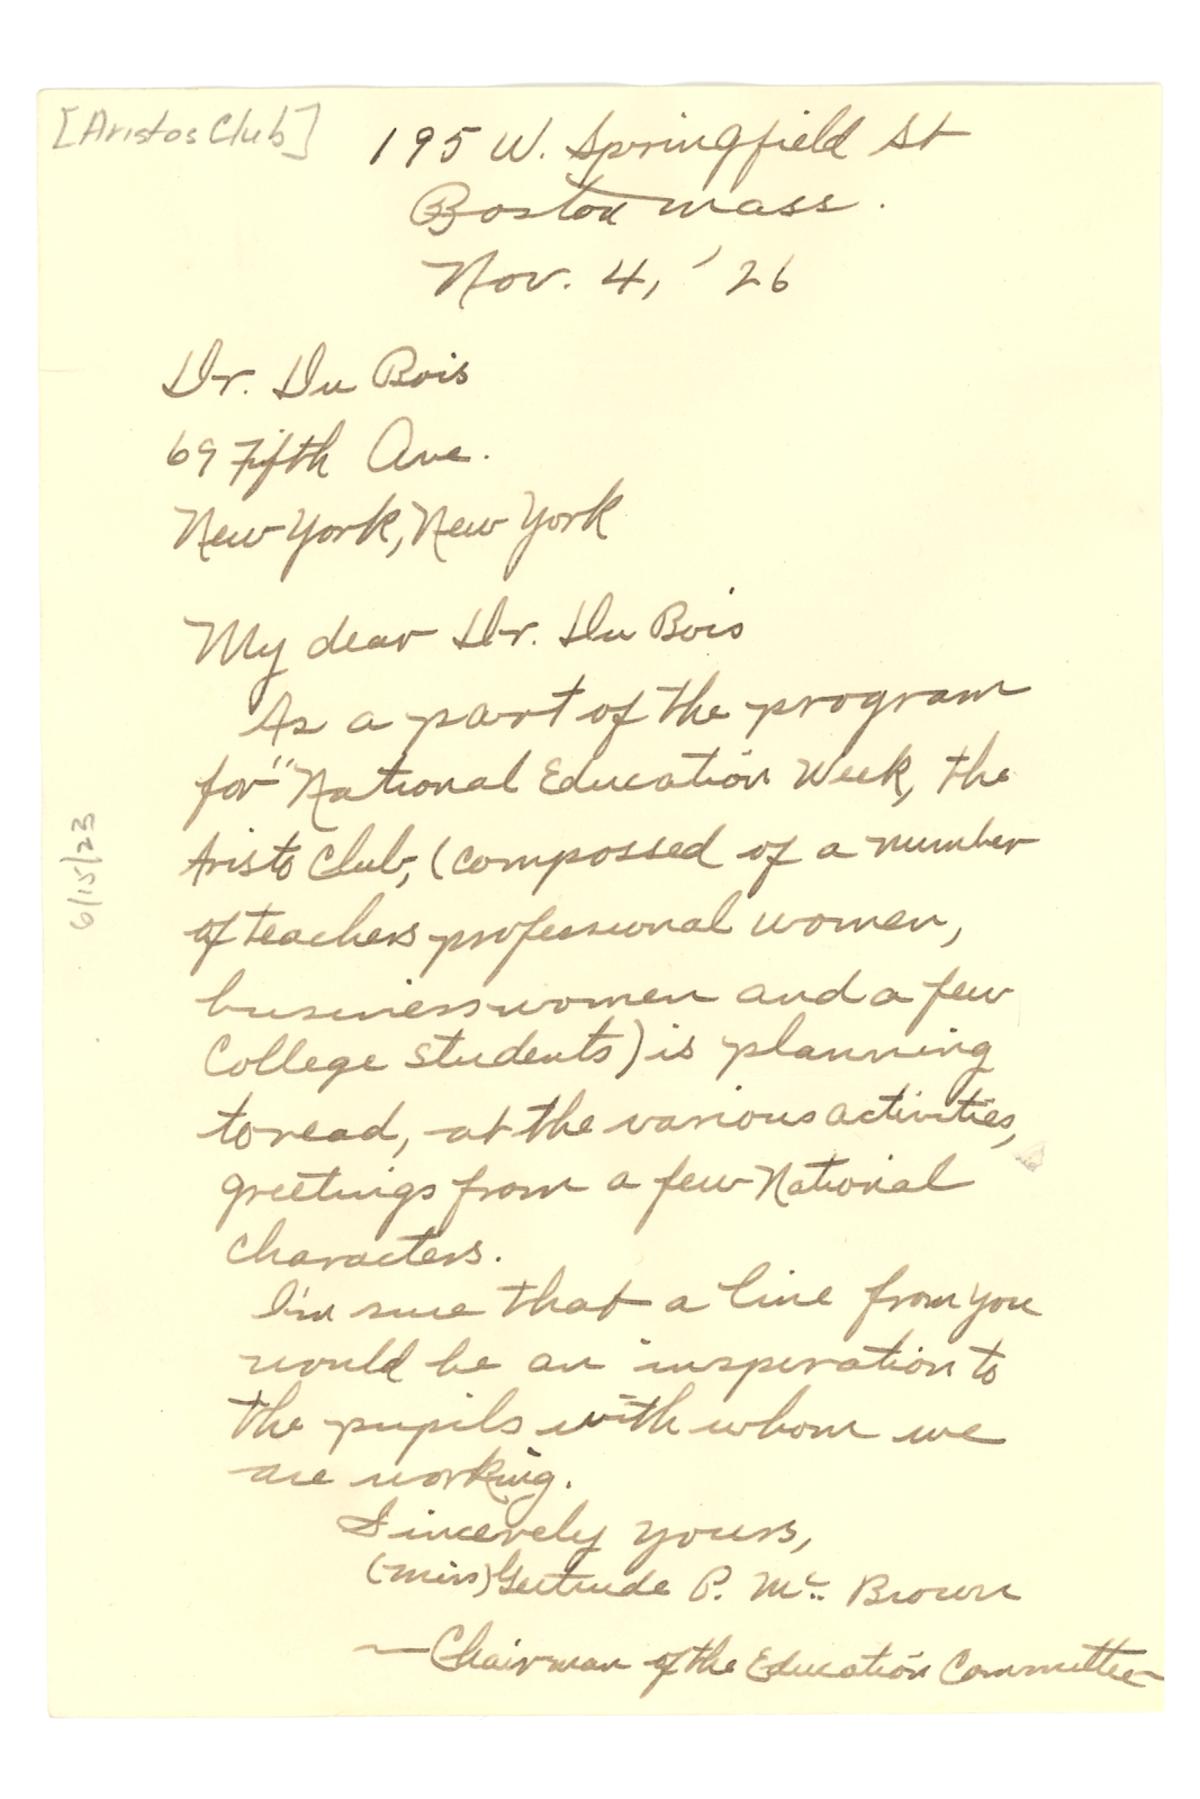 [Aristos Club]
195 W. Springfield St
Boston Mass.
Nov. 4, '26
Dr. Du Bois
69 Fifth Ave.
New York, New York
My dear Dr. Du Bois
As a part of the program
for "National Education Week, the
Aristo Club, (compossed of a number
of teachers professional women,
business women and a few
College students) is planning
to read, at the various activities,
greetings from a few National
characters.
I'm sure that a line from you
would be an inspiration to
the pupils with whom we
are working.
Sincerely yours,
(Miss) Gertrude P. Mc. Brown
—Chairman of the Education Committee
6/15/23